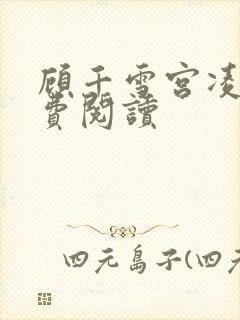 顾千雪宫凌
費閱讀
四元島子(四元